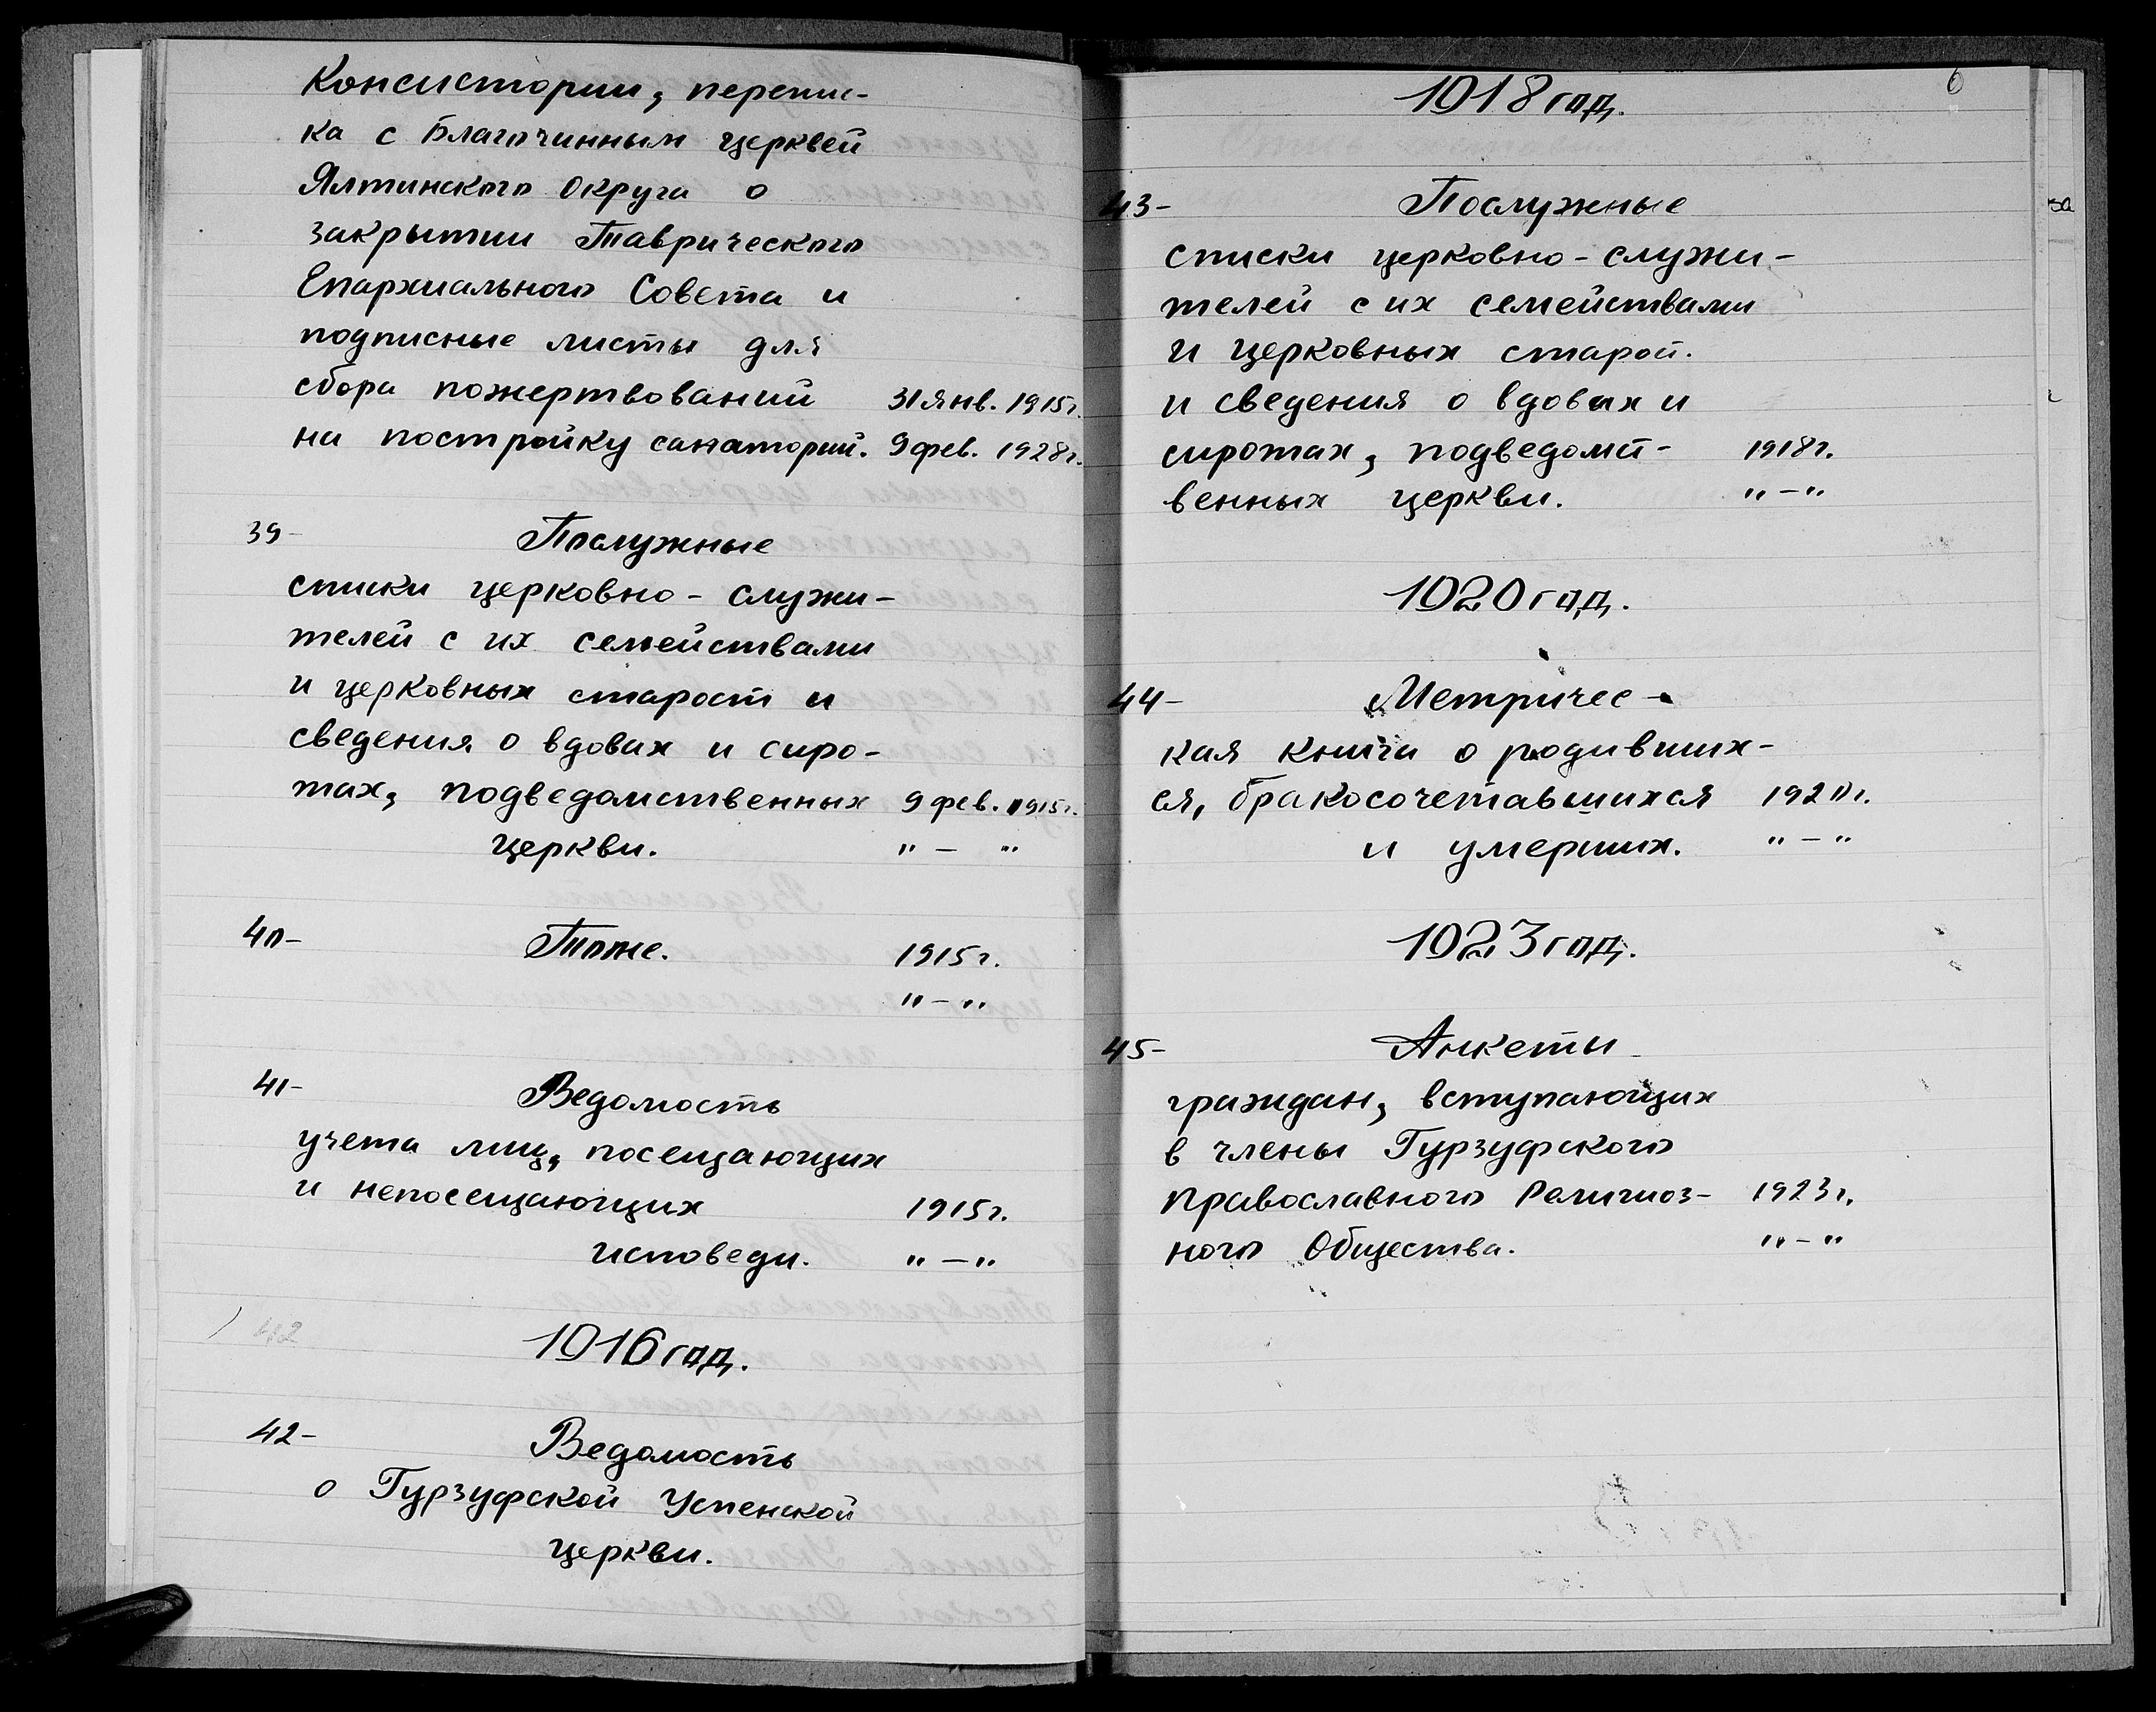 Консистории, перепис-
ка с Благочинным церквей
Ялтинского Округа о
закрытии Таврического
Епархиального Совета и
подписные листы для
сбора пожертвований 31 янв. 1915г.
на постройку санаторий. 9 фев. 1928г.
39- Послужные
списки церковно-служи-
телей с их семействами
и церковных старост и
сведения о вдовах и сиро-
тах, подведомственных 9 фев. 1915г.
церкви. " - "
40- Тоже. 1915г.
" - "
41- Ведомость
учета лиц, посещающих
и непосещающих 1915г.
исповеди. " - "
42
1916 год.
42- Ведомость
о Гурзуфской Успенской
церкви.
6
1918 год.
43- Послужные
списки церковно-служи-
телей с их семействами
и церковных старой.
и сведения о вдовах и
сиротах, подведомст- 1918г.
венных церкви. " - "
1920 год.
44- Метричес-
кая книга о родивших-
ся, бракосочетавшихся 1920г.
и умерших. " - "
1923 год.
45- Анкеты
граждан, вступающих
в члены Гурзуфского
Православного Религиоз- 1923г.
ного Общества. " - "